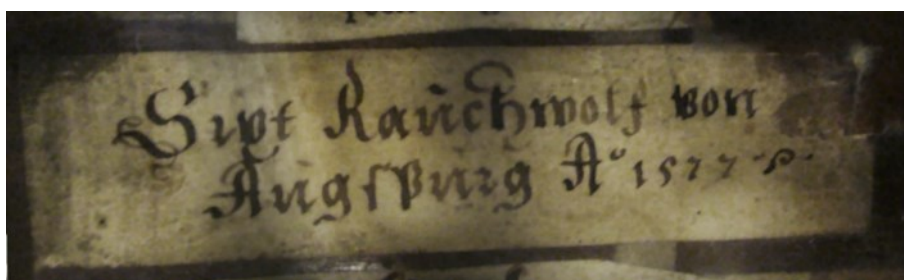 Sixt Raŭchwolf von
Aŭgſpŭrg Aº 1577